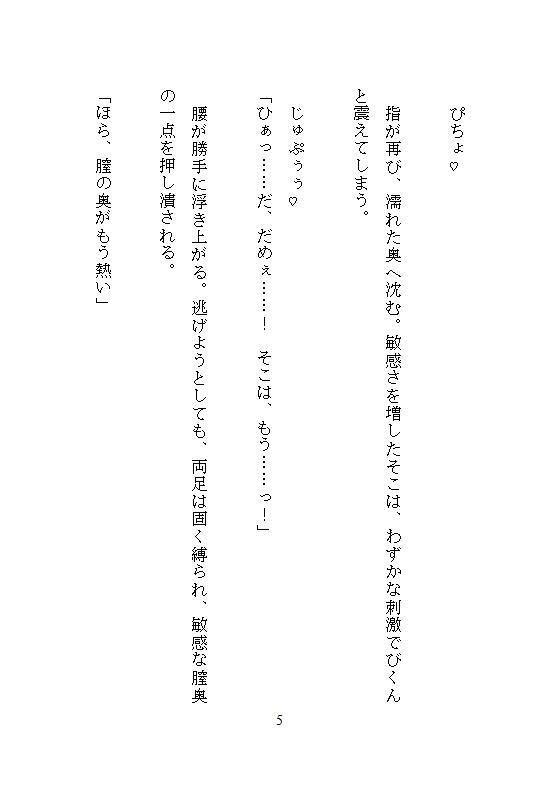 ぴちょ♡
指が再び、濡れた奥へ沈む。敏感さを増したそこは、わずかな刺激でびくん
と震えてしまう。
じゅぷぅぅ♡
「ひぁっ……だ、だめぇ……！　そこは、もう……っ！」
腰が勝手に浮き上がる。逃げようとしても、両足は固く縛られ、敏感な膣奥
の一点を押し潰される。
「ほら、膣の奥がもう熱い」
5